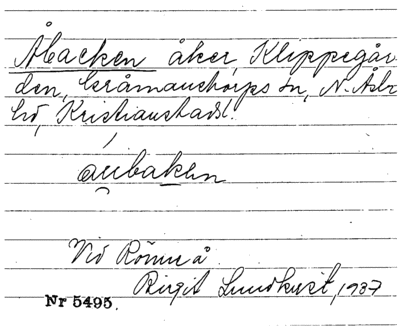 Åbacken åker, Klippegår-
den, Gråmanstorps sn, N. Åsbo
hd, Kristianstads l.
aubakən
Vid Rönne å
Birgit Lundkvist, 1937
Nr 5495.